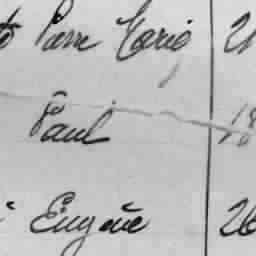 Pierre Marie 2
Paul 18
Eugène 26